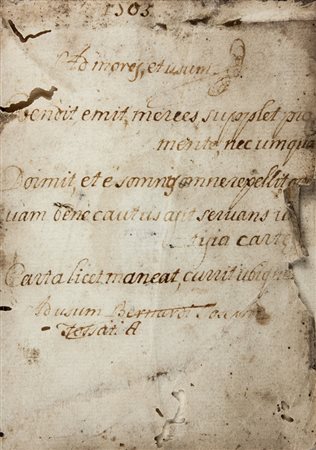 1505
Ad mores, et usum
Vendit emit, merces supplet pro
mente nec umqua
Dormit, et e somno omne repellit
uam bene cautus aut servans u
titia carte
Carta licet maneat, currit ubique
Ad usum Bernard